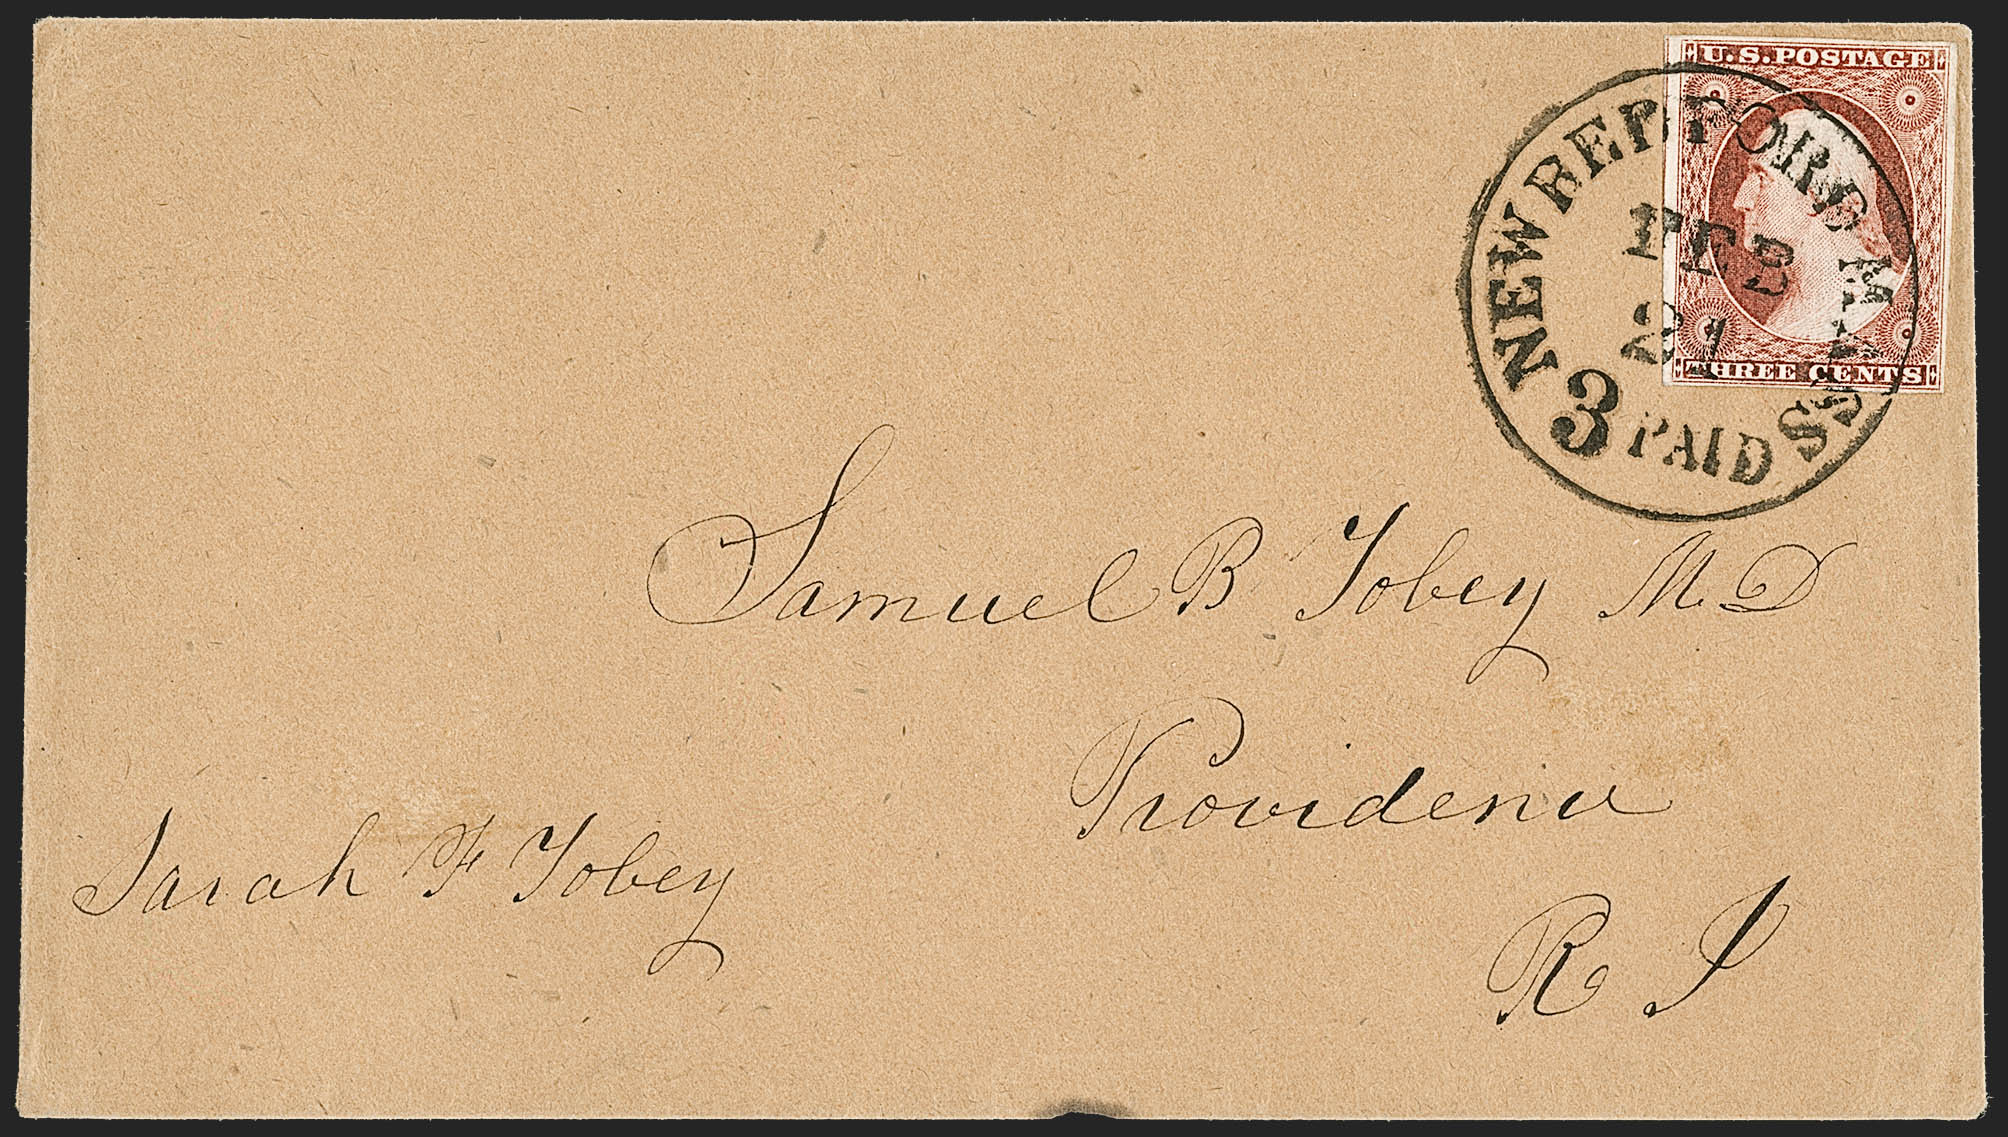 U.S. POSTAGE
NEW BEDFORD MASS
FEB
21
3 PAID
THREE CENTS
Samuel B Tobey M. D
Providence
Sarah F Tobey
R I